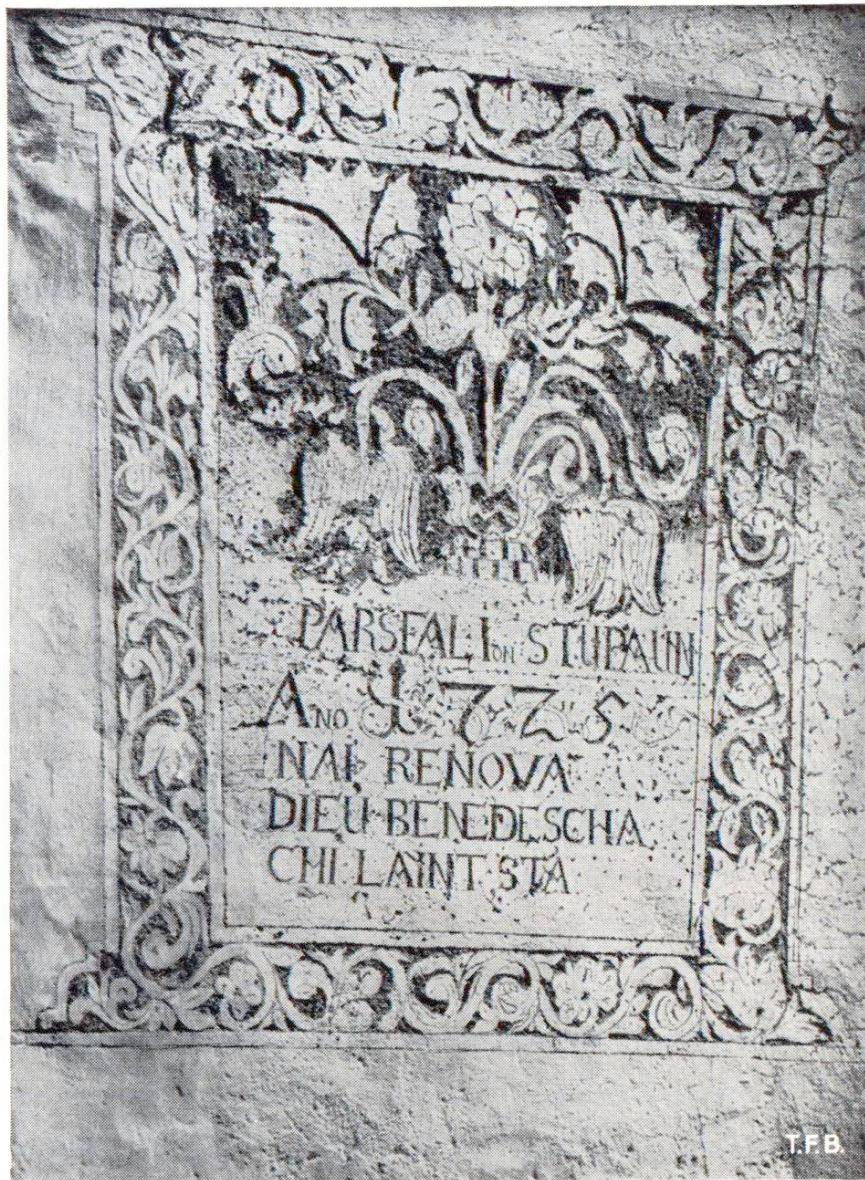 PARSFAL·Ion·STUPAUN
ANO 1725
NAI RENOVA
DIEU·BENEDESCHA
CHI·LAINT·STA
T.F.B.